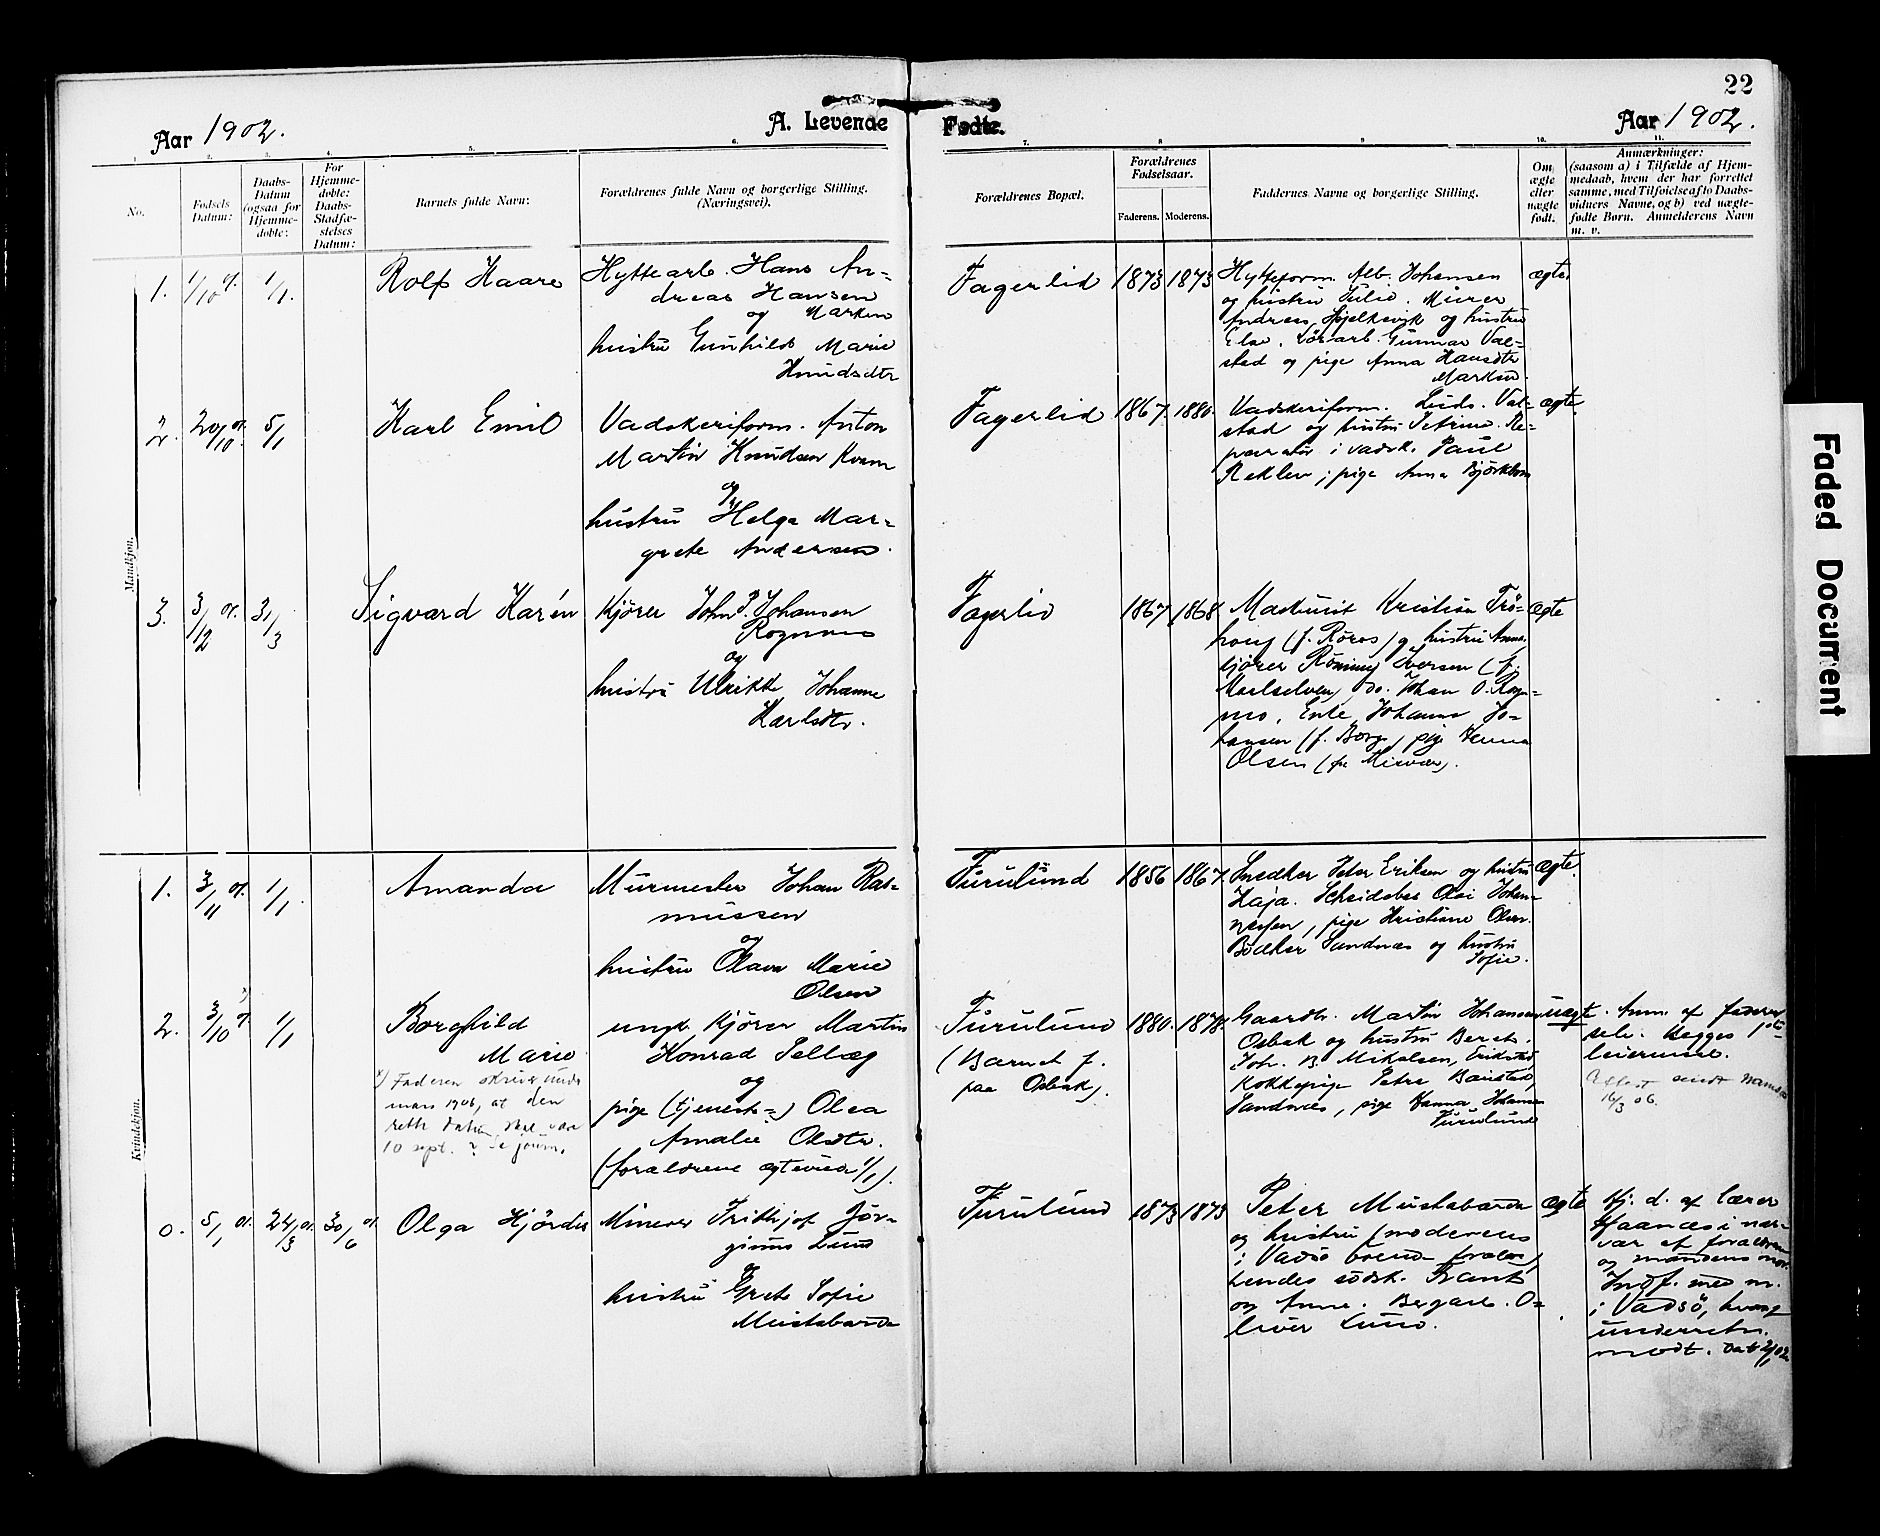 22
Aar 1902.
A. Levende Fødte.
Aar 1902.
1. 2. 3. 4. 5. 6. 7. 8 9 10. 11.
No.
Fødsels Datum:
Daabs-Datum (ogsaa for Hjemme-døbte:
For Hjemme-døbte: Daabs-Stadfæ-stelses Datum:
Barnets fulde Navn:
Forældrenes fulde Navn og borgerlige Stilling. (Næringsvei).
Forældrenes Bopæl.
Forældrenes Fødselsaar.
Faderens. Moderens.
Faddernes Navne og borgerlige Stilling.
Om ægte eller uægte født.
Anmærkninger:
(saasom a) i Tilfælde af Hjem-
medaab, hvem der har forrettet
samme, med Tilføielse af to Daabs-
vidners Navne, og b) ved uægte-
fødte Børn. Anmelderens Navn
m. v.
Mandkjøn.
1. 1/10 01. 1/1. Rolf Kaare
Hyttearb. Hans An-
dreas Hansen
og Marken
hustru Gunhild Marie
Knudsdtr
Fagerlid 1873 1873
Hytteform. Alb. Johansen
og hustru Julie. Murer
Andreas Hjelkevik og hustru
Else. Gunnar Val-
stad og pige Anna Hansdtr
Marken.
ægte
2. 20/10 01. 5/1 Karl Emil
Vadskeriform. Anton
Martin Knudsen Kvam
og
hustru Helga Mar-
grete Andersen.
Fagerlid 1867. 1880.
Vadskeriform. Ludv. Val-
stad og hustru Petrine. Re-
paratør i vadsk. Paul
Reklev; pige Anna
ægte
3. 3/12 01. 31/3 Sigvard Karén
Kjører John P. Johansen
Rognmo
og
hustru Ulrikke Johanne
Karlsdtr.
Fagerlid 1867 1868
Maskinist Kristian Trö-
houg (f. Röros) og hustru Anna,
kjører Rönning Iversen (f.
Maalselven) do. Johan O. Rogn-
mo, Enke Johanna Jo-
hansen (f. Borge), pige Hanna
Olsen (fr Misvær).
ægte
Kvindekjøn.
1. 3/11 01. 1/1 Amanda
Murmester Johan Ras-
mussen
og
hustru Olava Marie
Olsen
Furulund 1856 1867.
Snedker Peter Eriksen og hustru
Kaja. Scheidebas Olai Johan-
nesen, pige Kristiane Olsen.
Bødker Sandnes og hustru
Sofie.
ægte.
2. 3/10 x) 1/1 Borghild
Marie
x) Faderen skriver under
mars 1906, at den
rette dato skal være
10 sept. Se journ.
ungk. kjører Martin
Konrad Selbæg
og
pige (tjeneste-) Olea
Amalie Olsdtr.
(forældrene ægteviede 1/1).
Furulund
(Barnet f.
paa Osbak).
1880. 1878.
Gaardbr. Martin Johansen
Osbak og hustru Beret.
Joh. B. Mikalsen,
Kokkepige Petra
Sandnes, pige Hanna Johansen
Furulund
uægte.
Anm. af faderen
selv. Begges 1ste
leiermaal.
Attest sendt
16/3 06.
0. 5/1 01. 24/3 01. 30/6 01. Olga Hjördis
Minerer Frithjof Jör-
ginus Lund
og
hustru Grete Sofie
Mustabarda
Furulund 1873 1873
Peter Mustabarda
og hustru (moderens
i Vadsö boende forældre)
hendes södsk. Frants
og Anna. Bergarb. O-
liver Lund.
ægte
Hj. d. af lærer
Haanæs i nær-
vær af forældrene
og mandens mor.
Indf. med n.
i Vadsö, hvorom
underretn.
modt.
Faded Document